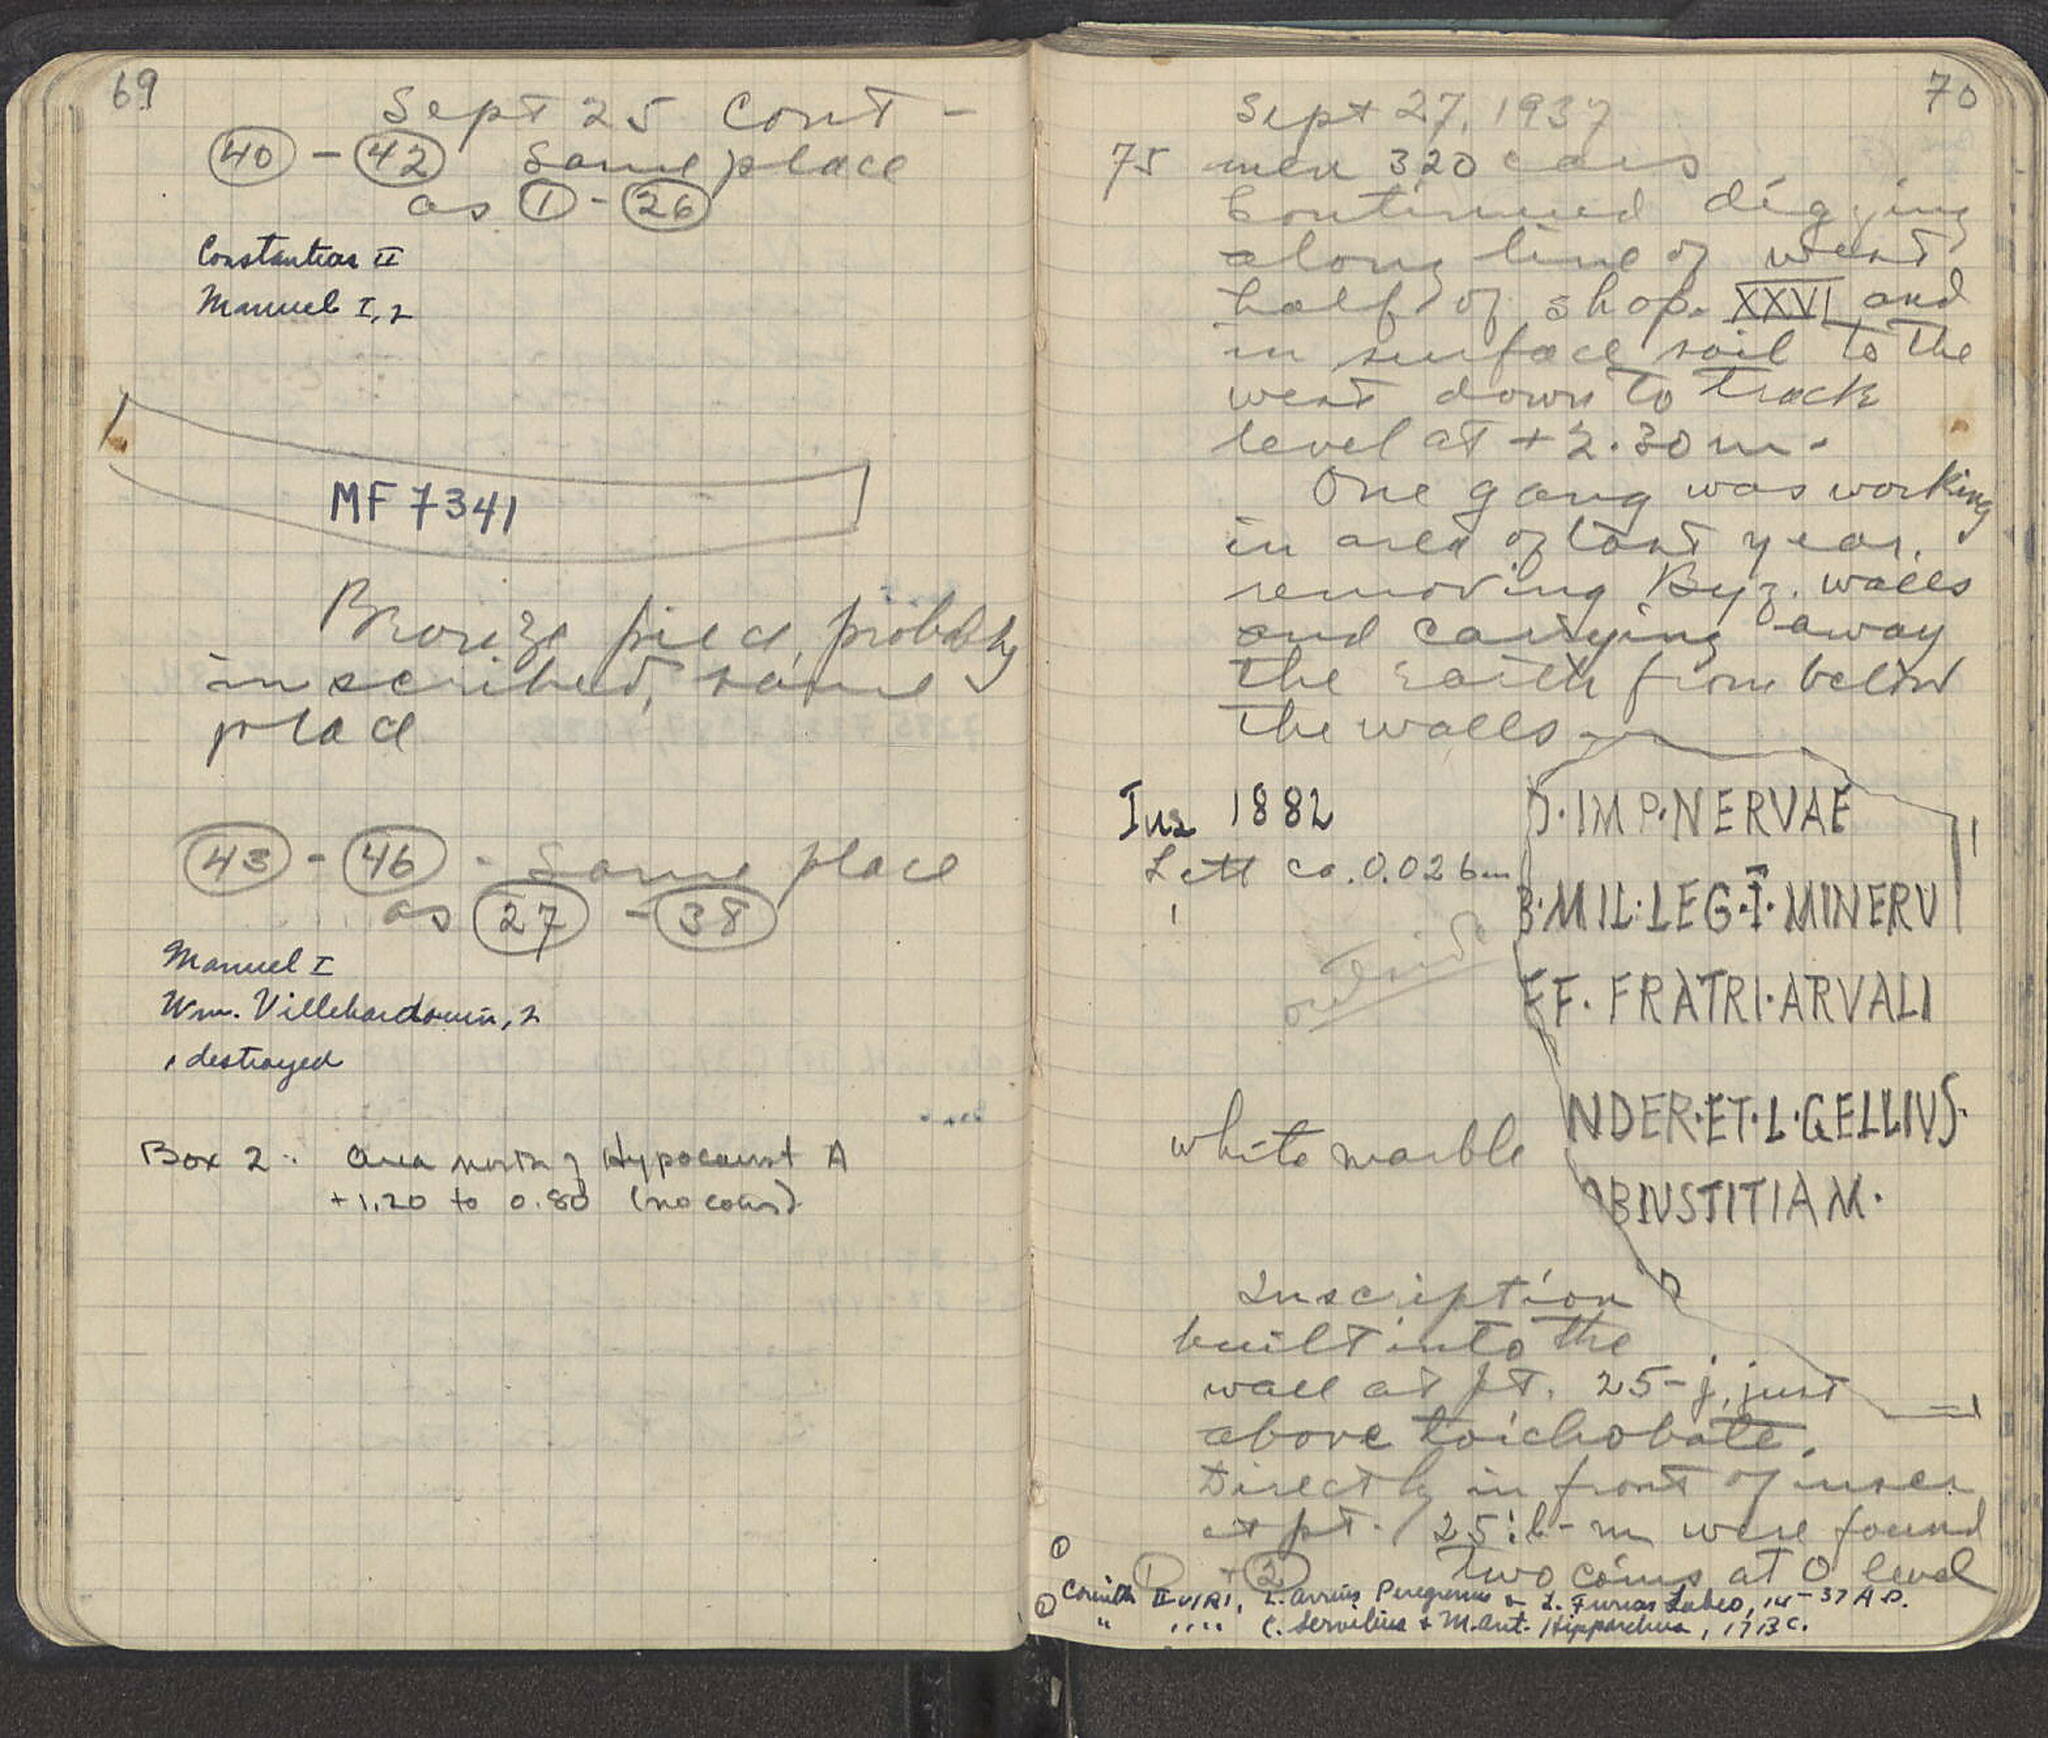 69
Sept 25 Cont -
(40) - (42) Same place
as (1) - (26)
Constantius II
Manuel I, 2
MF 7341
Bronze piece, probably
inscribed, same
place
(43) - (46) - Same place
as (27) - (38)
Manuel I
Wm. Villehardouin, 2
1 destroyed
Box 2: Area north of Hypocaust A
+1.20 to 0.80 (no coins)
70
Sept 27, 1937
75 men 320 cars
Continued digging
along line of west
half of shop. XXVI and
in surface soil to the
west down to track
level at +2.30 m.
One gang was working
in area of last year,
removing Byz. walls
and carrying away
the earth from below
the walls.
Ins 1882
Lett ca. 0.026m
·IMP·NERVAE
B·MIL·LEG·I·MINERV
EF. FRATRI·ARVALI
white marble
NDER·ET·L·GELLIUS·
BIUSTITIAM·
Inscription
built into the
wall at pt. 25-j, just
above toichobate.
Directly in front of inscr.
at pt. 25: - m were found
(1) + (2) two coins at 0 level
① Corinth IIVIRI, L. Arrius Peregrinus & L. Furius Labeo, 14-37 A.D.
② " " " C. Servilius & M. Ant. Hipparchus, 17 B.C.